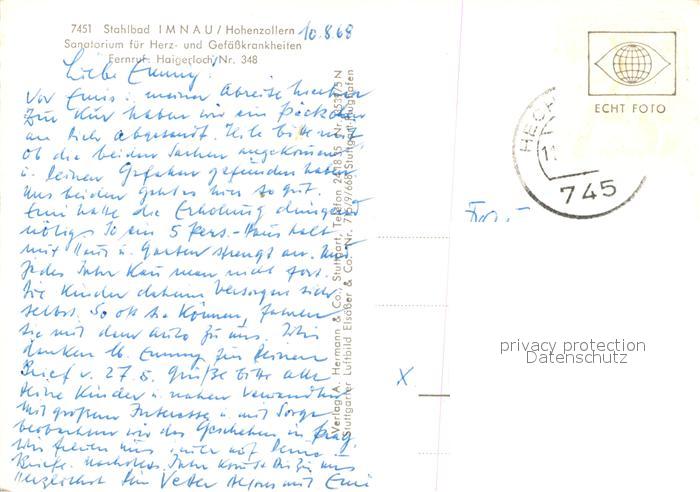 7451 Stahlbad IMNAU / Hohenzollern
Sanatorium für Herz- und Gefäßkrankheiten
Fernruf: Haigerloch Nr. 348
10.8.68
Liebe Emmy!
Vor Emis u. meiner Abreise hierher
zur Kur haben wir ein Päckchen
an Dich abgesandt. Teile bitte mit
ob die beiden Sachen angekommen
u. Deinen Gefallen gefunden haben.
Uns beiden geht es hier so gut.
Emi hatte die Erholung dringend
nötig. So ein 5 Pers.-Haushalt
mit Haus u. Garten strengt an. Und
jedes Jahr kann man nicht fort.
Die Kinder daheim versorgen sich
selbst. So oft sie können, fahren
sie mit dem Auto zu uns. Wir
danken lb. Emmy für Deinen
Brief v. 27.5. Grüße bitte alle
Deine Kinder u. nahen Verwandten
Mit großem Interesse u. mit Sorge
beobachten wir das Geschehen in Prag.
Wir freuen uns immer auf Deine
Briefe. Nächstes Jahr kommst Du zu uns
Herzlichst Dein Vetter mit Emi
Verlag A. Hermann & Co., Stuttgart, Telefon
Stuttgarter Luftbild Elsäßer & Co.
Stuttgart-Flughafen
ECHT FOTO
HECH
11
745
Frau
X
privacy protection
Datenschutz